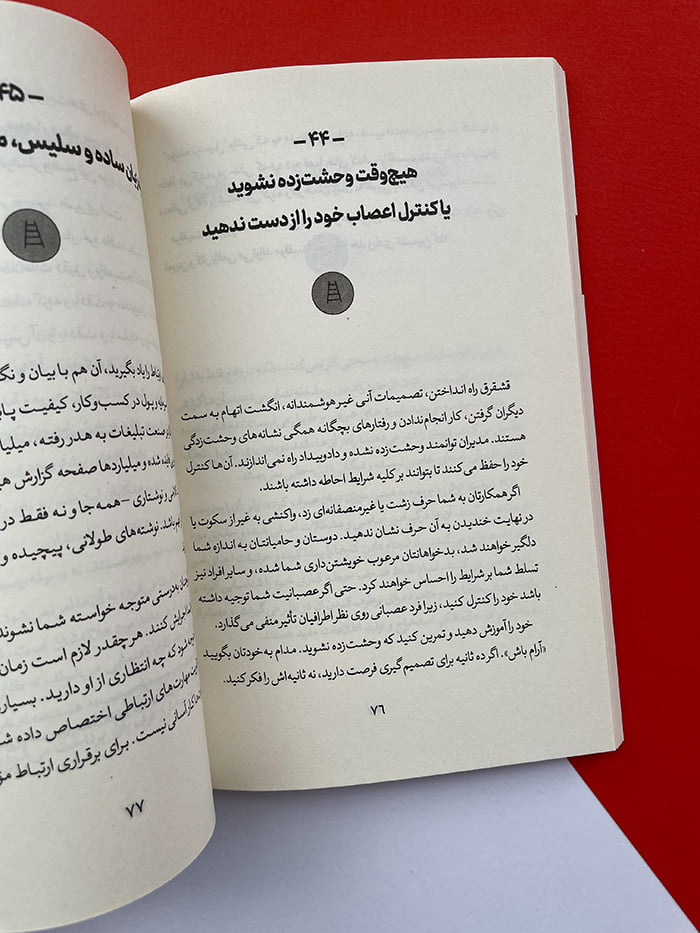 – ۴۴ –
هیچ‌وقت وحشت‌زده نشوید
یا کنترل اعصاب خود را از دست ندهید
قشقرق راه انداختن، تصمیمات آنی غیرهوشمندانه، انگشت اتهام به سمت
دیگران گرفتن، کار انجام ندادن و رفتارهای بچگانه همگی نشانه‌های وحشت‌زدگی
هستند. مدیران توانمند وحشت‌زده نشده و دادوبیداد راه نمی‌اندازند. آن‌ها کنترل
خود را حفظ می‌کنند تا بتوانند بر کلیه شرایط احاطه داشته باشند.
اگر همکارتان به شما حرف زشت یا غیرمنصفانه‌ای زد، واکنشی به غیر از سکوت یا
در نهایت خندیدن به آن حرف نشان ندهید. دوستان و حامیانتان به اندازه شما
دلگیر خواهند شد، بدخواهانتان مرعوب خویشتن‌داری شما شده، و سایر افراد نیز
تسلط شما بر شرایط را احساس خواهند کرد. حتی اگر عصبانیت شما توجیه داشته
باشد خود را کنترل کنید، زیرا فرد عصبانی روی نظر اطرافیان تأثیر منفی می‌گذارد.
خود را آموزش دهید و تمرین کنید که وحشت‌زده نشوید. مدام به خودتان بگویید
«آرام باش». اگر ده ثانیه برای تصمیم‌گیری فرصت دارید، نه ثانیه‌اش را فکر کنید.
۷۶
– ۴۵
زبان ساده و سلیس،
را یاد بگیرید، آن هم با بیان و
پول در کسب‌وکار، کیفیت
صنعت تبلیغات به هدر رفته،
شده و میلیاردها صفحه گزارش
و نوشتاری – همه‌جا و نه فقط در
باشد. نوشته‌های طولانی، پیچیده و
به‌درستی متوجه خواسته شما نشوند
کنند. هر چقدر لازم است زمان
شود که چه انتظاری از او دارید.
مهارت‌های ارتباطی اختصاص داده
آسانی نیست. برای برقراری ارتباط
۷۷